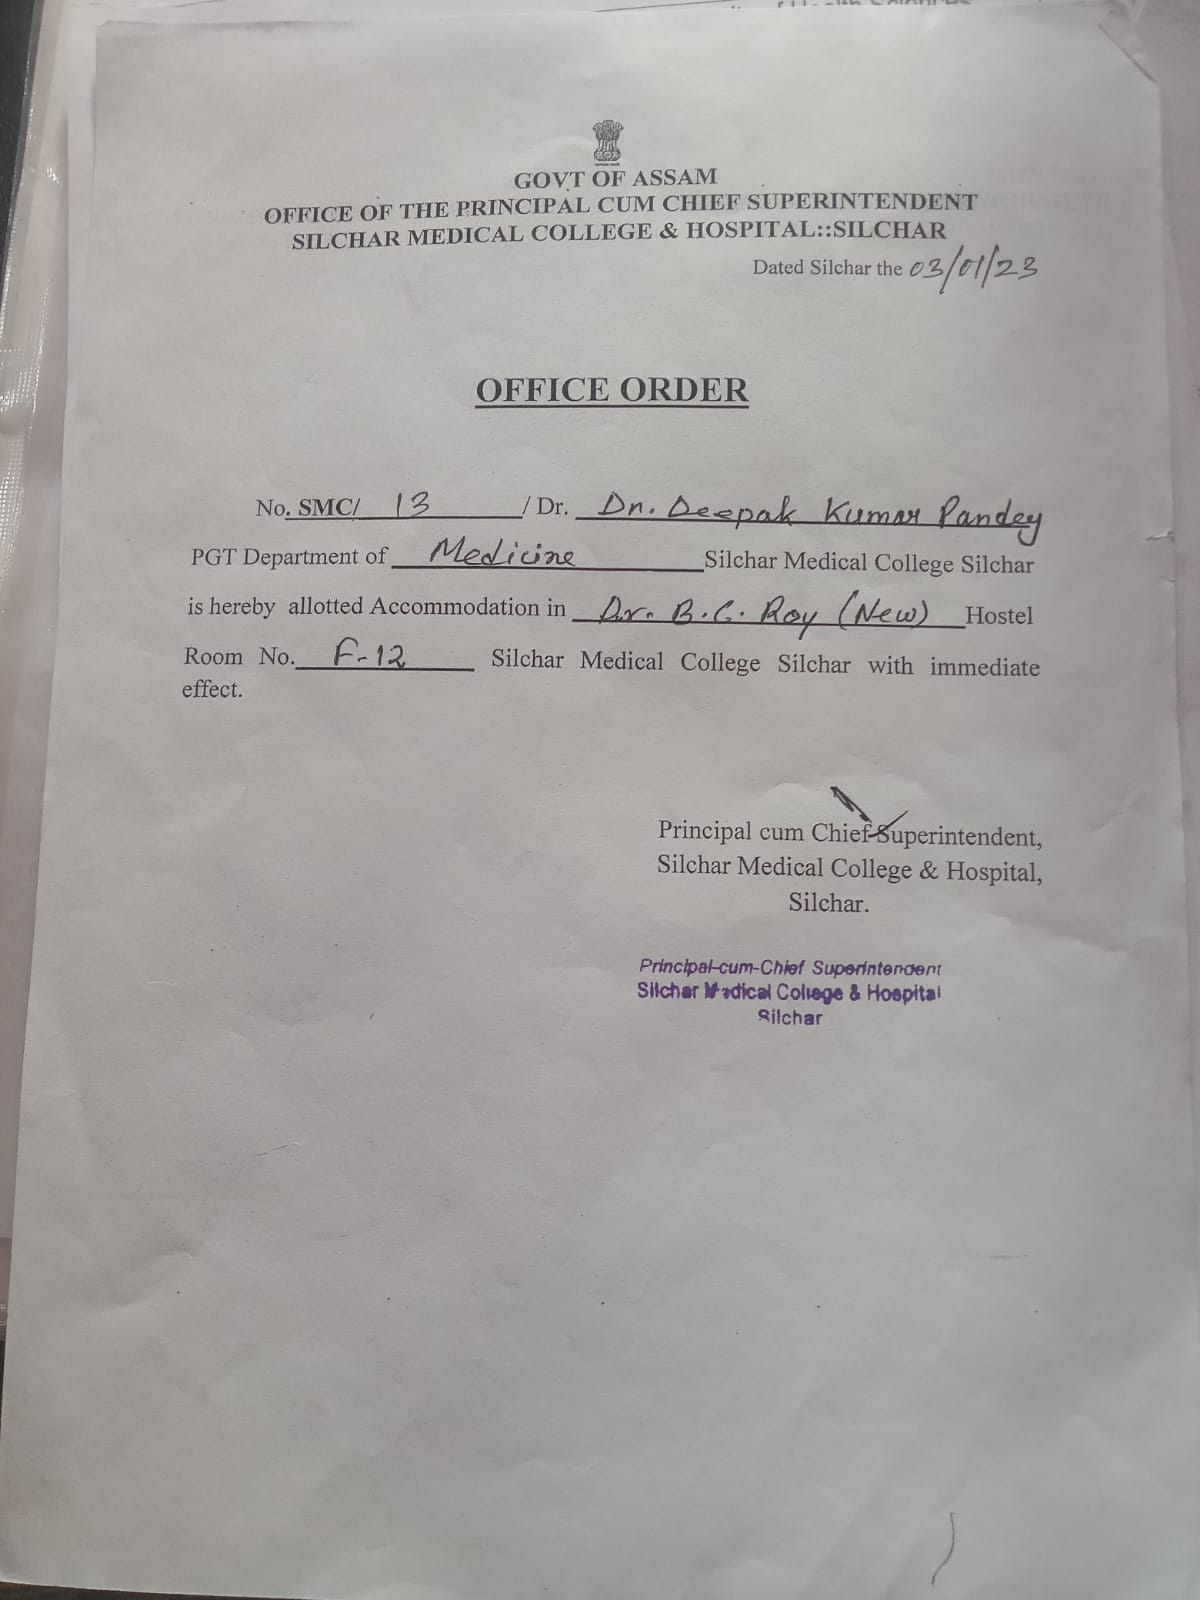 GOVT OF ASSAM
OFFICE OF THE PRINCIPAL CUM CHIEF SUPERINTENDENT
SILCHAR MEDICAL COLLEGE & HOSPITAL::SILCHAR
Dated Silchar the 03/01/23
OFFICE ORDER
No. SMC/ 13 / Dr. Dr. Deepak Kumar Pandey
PGT Department of Medicine Silchar Medical College Silchar
is hereby allotted Accommodation in Dr. B.C. Roy (New) Hostel
Room No. F-12 Silchar Medical College Silchar with immediate
effect.
Principal cum Chief Superintendent,
Silchar Medical College & Hospital,
Silchar.
Principal-cum-Chief Superintendent
Silchar Medical College & Hospital
Silchar